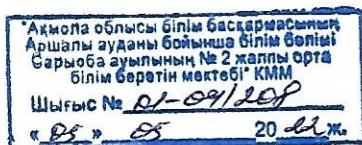 "Ақмола облысы білім басқармасының
Аршалы ауданы бойынша білім бөлімі
Сарыоба ауылының № 2 жалпы орта
білім беретін мектебі" КММ
Шығыс № 01-04/208
« 05 » 05 20 22 ж.